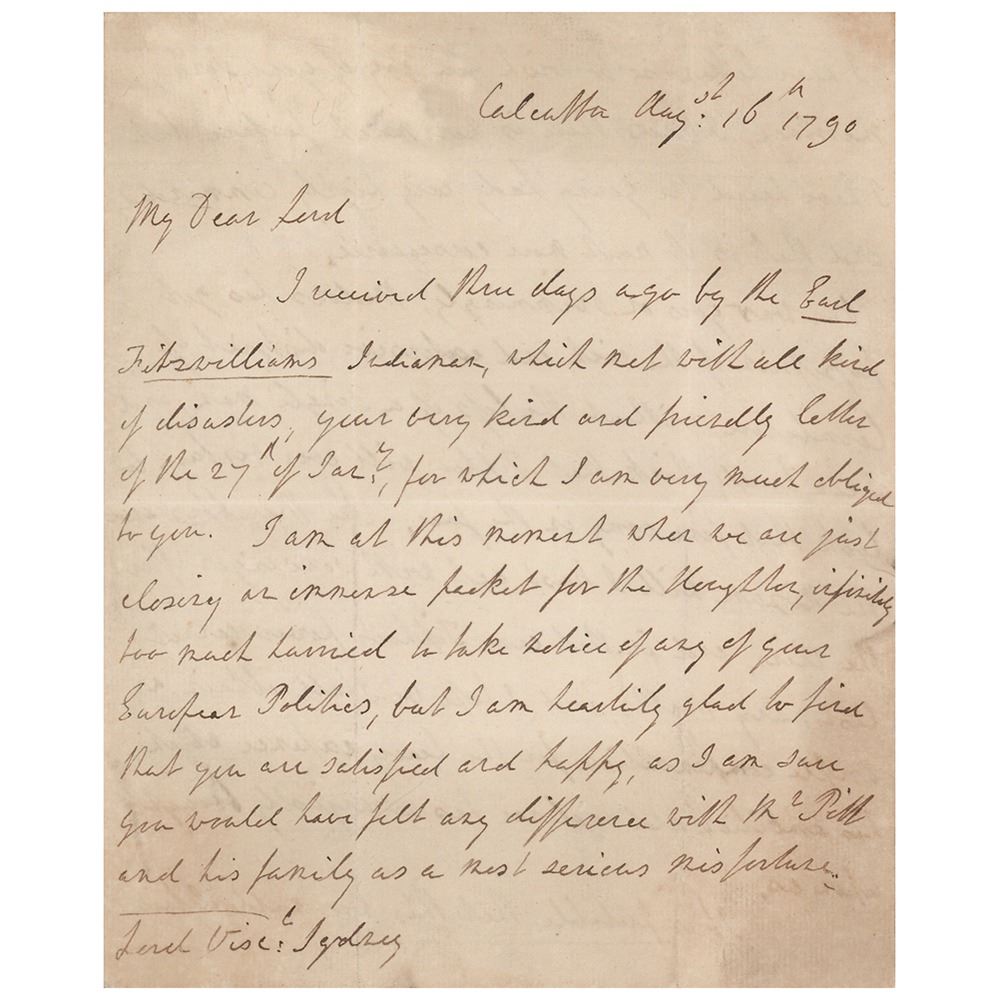 Calcutta Augst: 16th 1790
My Dear Lord
I received three days ago by the Earl
Fitzwilliams Indiaman, which met with all kind
of disasters, your very kind and friendly letter
of the 27th of Jary:, for which I am very much obliged
to you. I am at this moment when we are just
closing an immense packet for the Houghton, infinitely
too much hurried to take notice of any of your
European Politics, but I am heartily glad to find
that you are satisfied and happy, as I am sure
you would have felt any difference with Mr Pitt
and his family as a most serious misfortune.
Lord Visct: Sydney